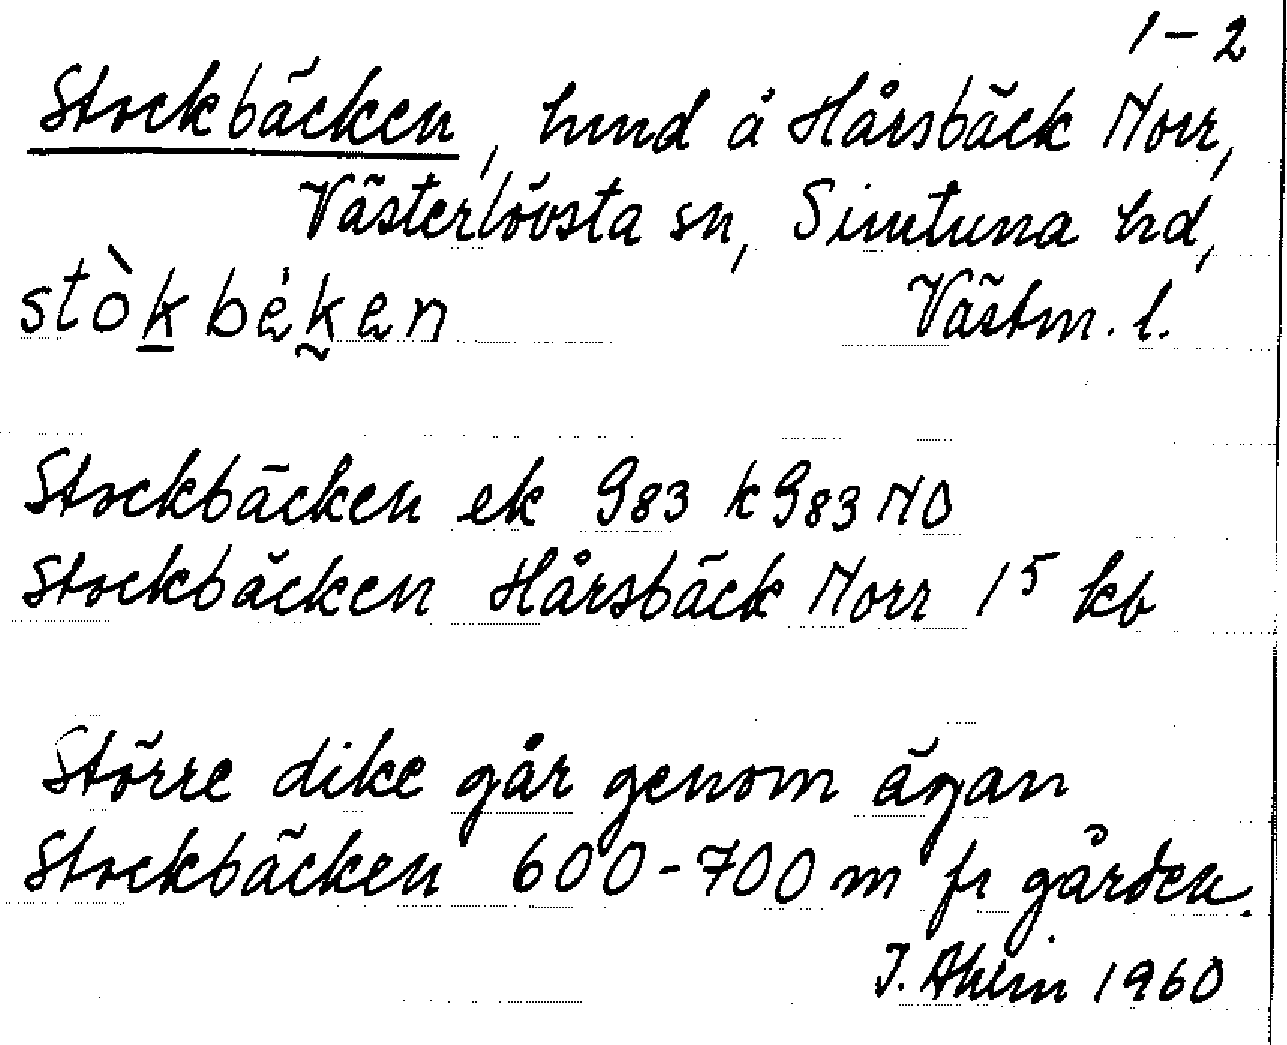 1-2
Stockbäcken, hmd å Hårsbäck Norr,
Västerlövsta sn, Simtuna hd,
stòkbèken Västm. l.
Stockbäcken ek 983 k 983 NO
Stockbäcken Hårsbäck Norr 1⁵ kb
Större dike går genom ägan
Stockbäcken 600-700 m fr gården.
I. 1960